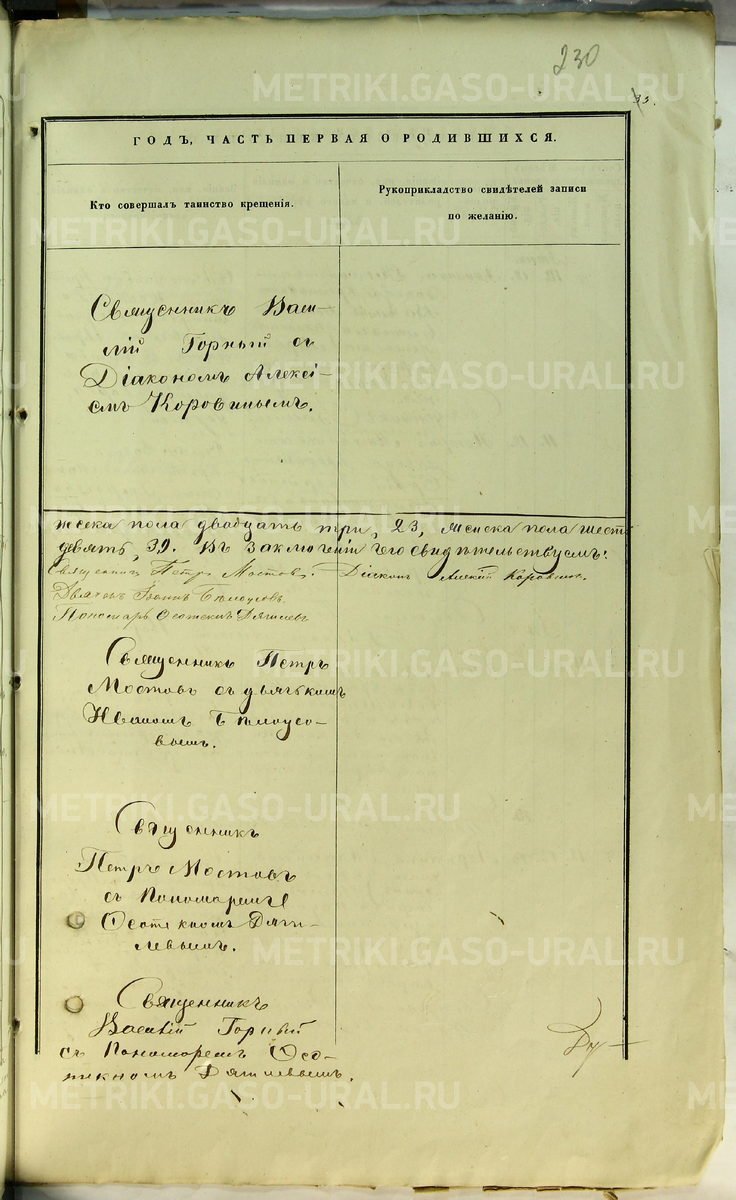 230
33.
ГОДЪ, ЧАСТЬ ПЕРВАЯ О РОДИВШИХСЯ.
Кто совершалъ таинство крещенія.
Рукоприкладство свидѣтелей записи
по желанію.
Священникъ Васи-
лій Горный съ
Діакономъ Алексі-
емъ Коровинымъ.
жеска пола двадцать три, 23, женска пола
девять, 39. Въ заключеніи чего свидѣтельствуемъ:
Священникъ Петръ Мостовъ. Діаконъ Алексій Коровинъ.
Дьячекъ Іоаннъ Бѣлоусовъ.
Пономарь Ѳеотекнъ Дягилевъ
Священникъ Петръ
Мостовъ съ дьячкомъ
Иваномъ Бѣлоусо-
вымъ.
Священникъ
Петръ Мостовъ
съ Пономаремъ
Ѳеотекномъ Дяги-
левымъ.
Священникъ
Василій Горный
съ Пономаремъ Ѳео-
текномъ Дягилевымъ.
METRIKI.GASO-URAL.RU